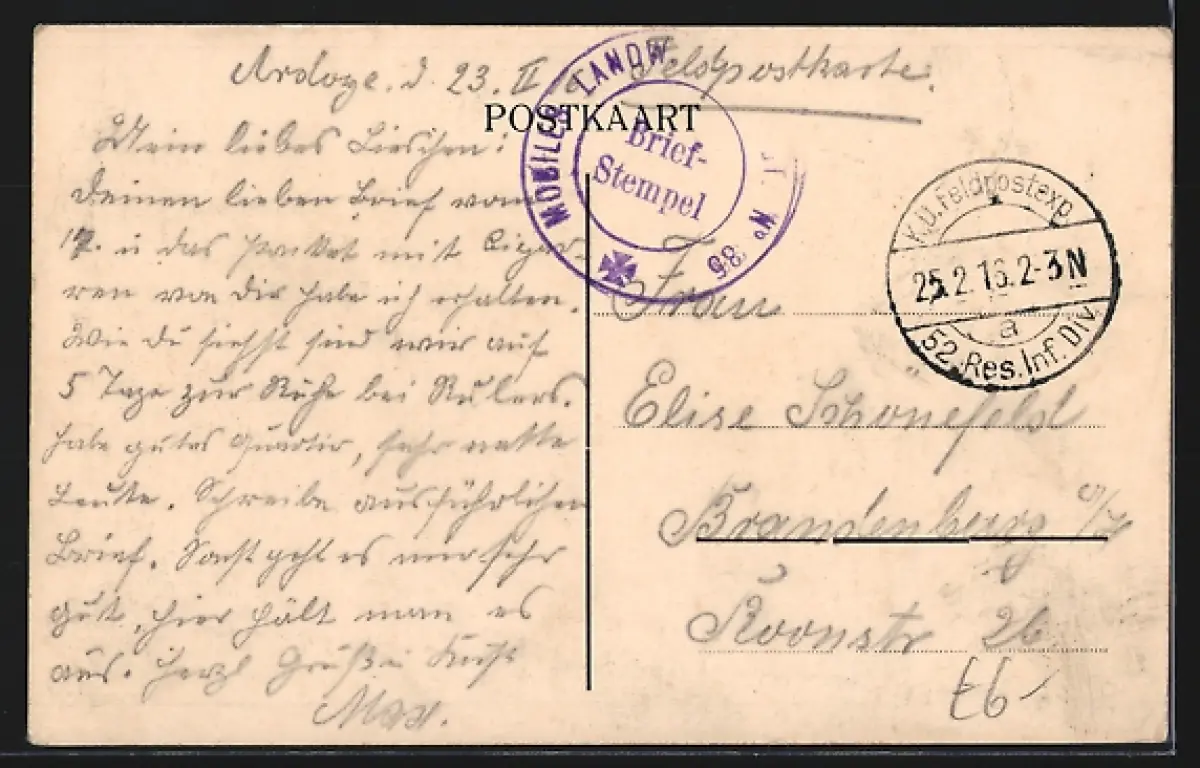 Ardoye. d. 23. II 16
Feldpostkarte.
POSTKAART
Mein liebes Lieschen!
Deinen lieben Brief vom
17. u das Packet mit Cigar-
ren von Dir habe ich erhalten.
Wie Du siehst sind wir auf
5 Tage zur Ruhe bei Rulers.
habe gutes Quartir, sehr nette
Leute. Schreibe ausführlichen
Brief. Sonst geht es mir sehr
gut, hier hält man es
aus. Herzl Grüße u Kuß
Max.
MOBILES LANDW
Nº 36
Brief-
Stempel
K.D. Feldpostexp.
25.2.16.2-3N
a
52. Res. Inf. Div.
Frau
Elise Schönefeld
Brandenburg a/H
Roonstr 26
E6-